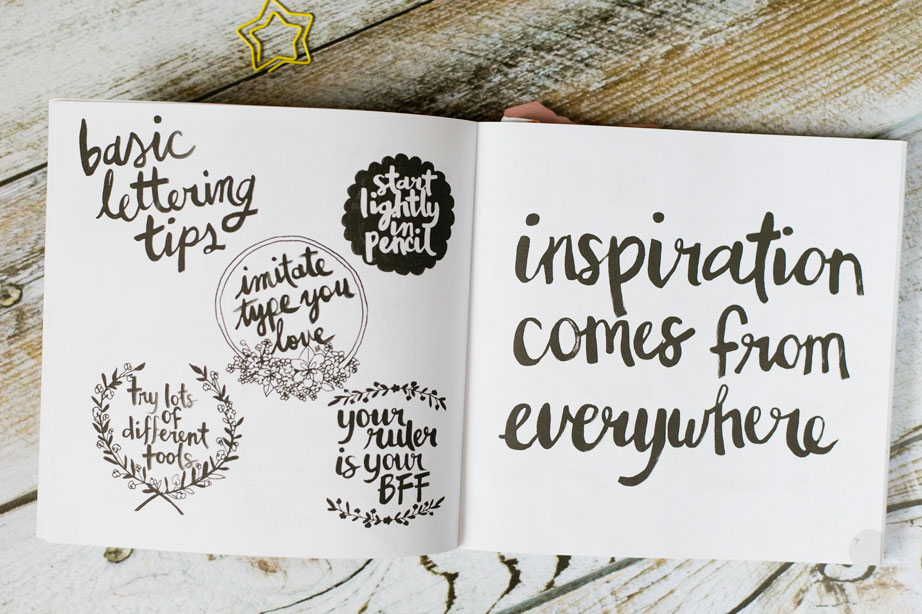 basic
lettering
tips
start
lightly
in
pencil
imitate
type you
love
try lots
of
different
tools
your
ruler
is your
BFF
inspiration
comes from
everywhere
7